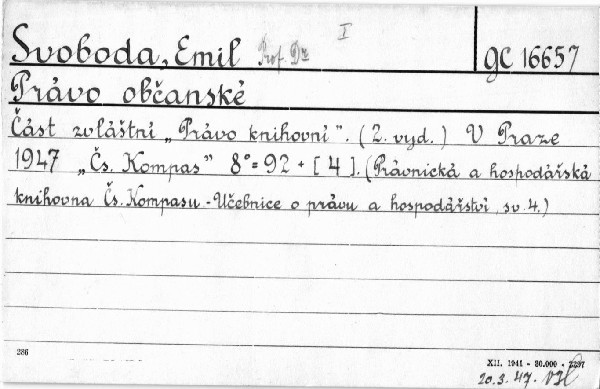 I
Svoboda, Emil Prof. Dr. gC 16657
Právo občanské
Část zvláštní „Právo knihovní". (2. vyd.) V Praze
1947 „Čs. Kompas" 8° = 92 + [4]. (Právnická a hospodářská
knihovna Čs. Kompasu - Učebnice o právu a hospodářství, sv. 4.)
286
XII. 1941 - 30.000 - 2237
20.3.47.